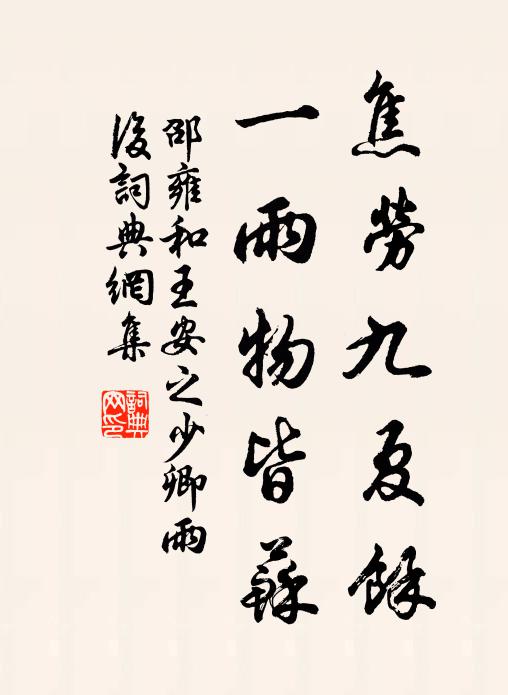 焦勞九夏餘
一雨物皆蘇
邵雍和王安之少卿雨
後詞典網集
詞典
网印